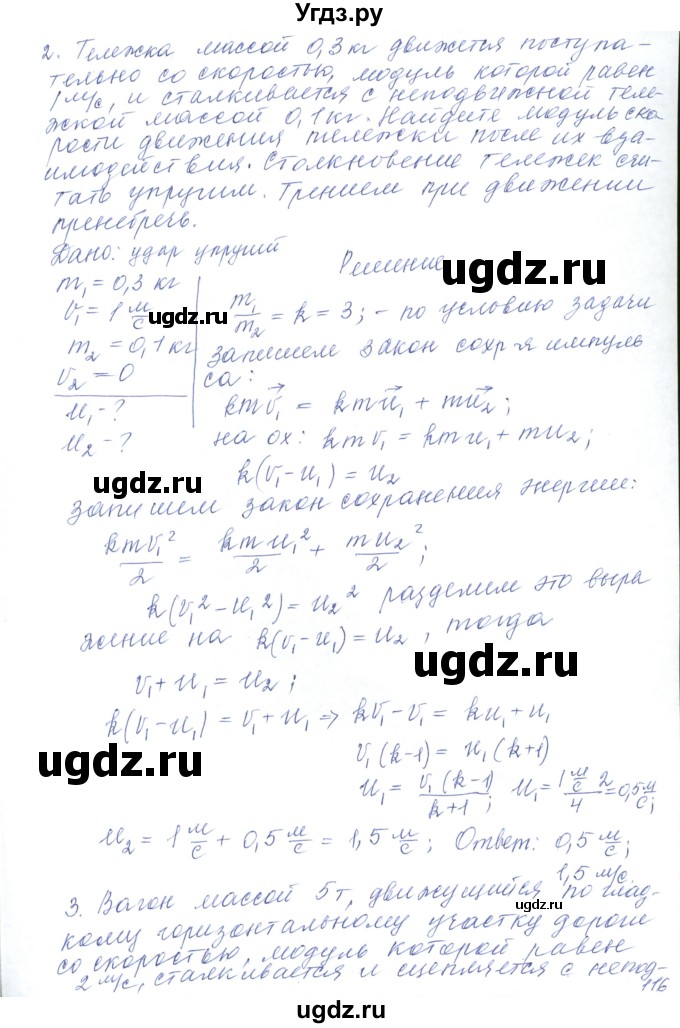 Угдз.ру
2. Тележка массой 0,3 кг движется поступа-
тельно со скоростью, модуль которой равен
1 м/с, и сталкивается с неподвижной теле-
жкой массой 0,1 кг. Найдите модуль ско
рости движения тележки после их вза-
имодействия. Столкновение тележек счи-
тать упругим. Трением при движении
пренебречь.
Дано: удар упругий
Решение
ugdz.ru
m₁ = 0,3 кг
v₁ = 1 м/с
ugdz.ru
m₂ = 0,1 кг
v₂ = 0
u₁ - ?
u₂ - ?
m₁/m₂ = k = 3; - по условию задачи
запишем закон сохр-я импуль
са:
kmv⃗₁ = kmu⃗₁ + mu⃗₂;
на ох: kmv₁ = kmu₁ + mu₂;
k(v₁-u₁) = u₂
ugdz.ru
запишем закон сохранения энергии:
kmv₁²/2 = kmu₁²/2 + mu₂²/2;
k(v₁²-u₁²) = u₂² разделим это выра
жение на k(v₁-u₁) = u₂, тогда
ugdz.ru
v₁+u₁ = u₂;
k(v₁-u₁) = v₁+u₁ ⇒ kv₁-v₁ = ku₁+u₁
ugdz.ru
v₁(k-1) = u₁(k+1)
u₁ = v₁(k-1)/k+1; u₁ = 1 м/с 2/4 = 0,5 м/с;
u₂ = 1 м/с + 0,5 м/с = 1,5 м/с; Ответ: 0,5 м/с;
1,5 м/с.
3. Вагон массой 5т, движущийся по глад-
ugdz.ru
кому горизонтальному участку дороги
со скоростью, модуль которой равен
2 м/с, сталкивается и сцепляется с непод-
116
ugdz.ru